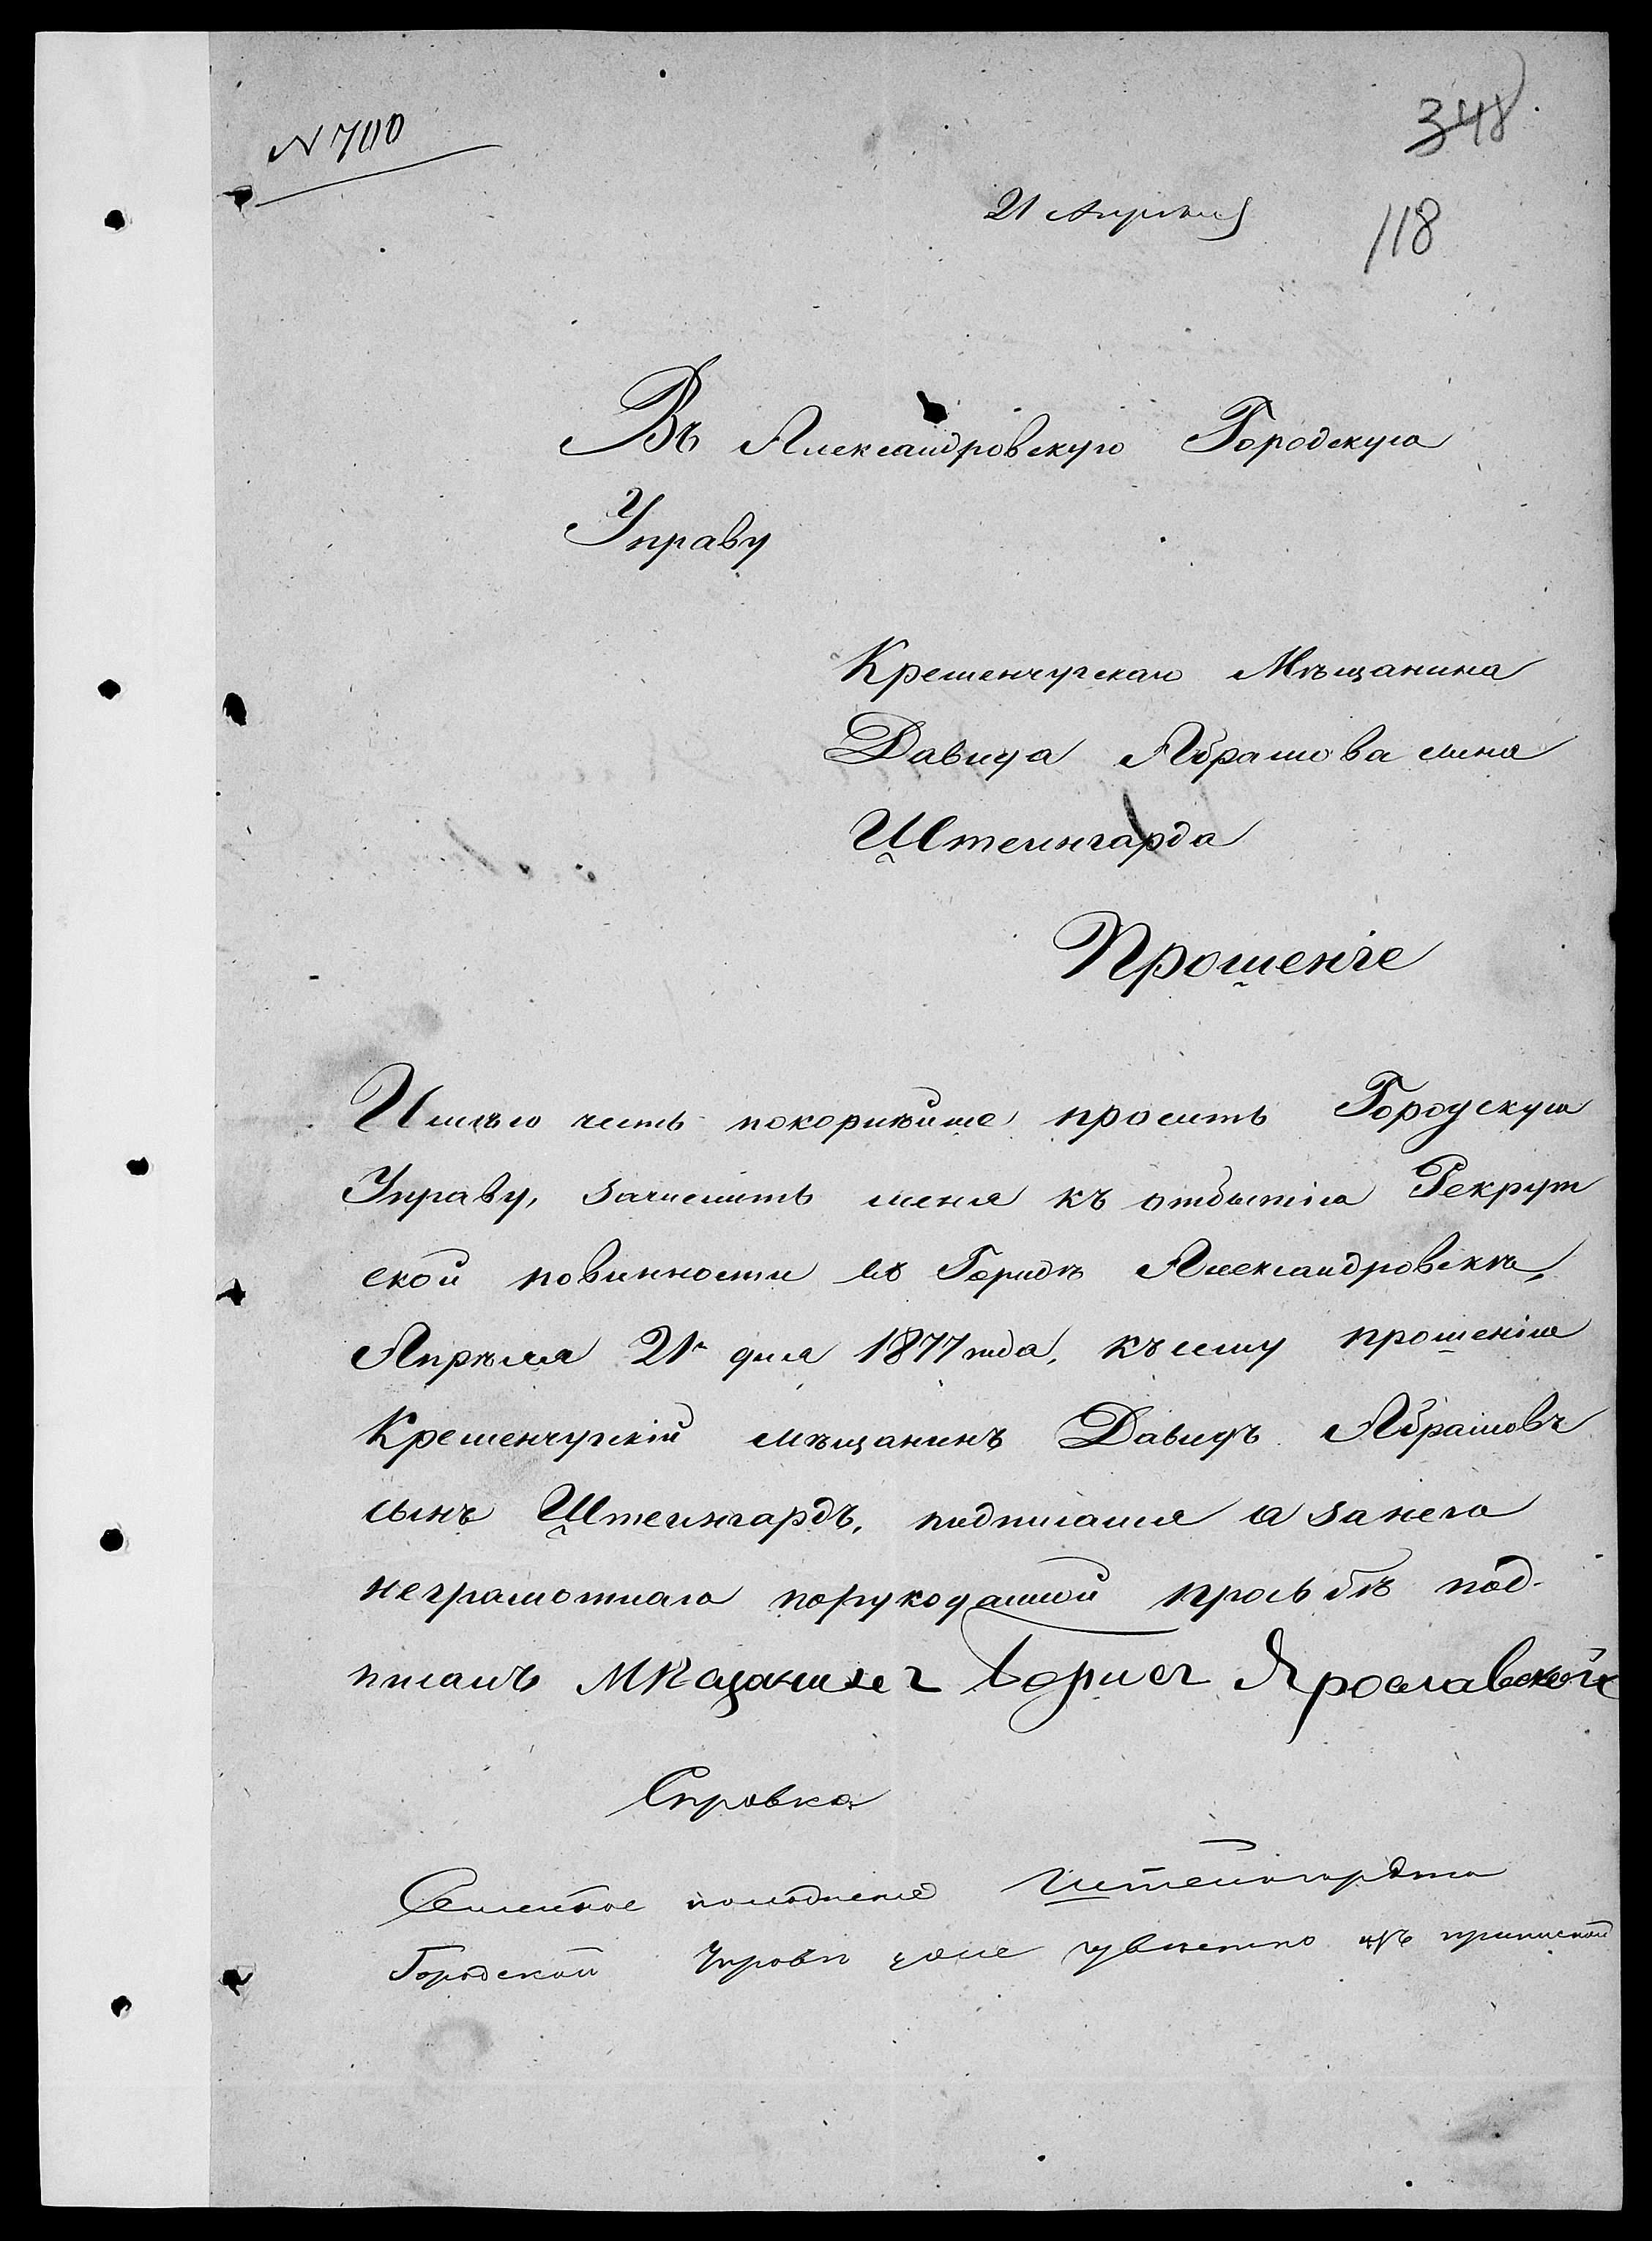 N 700
348
21 Апрѣля
118
Въ Александровскую Городскую
Управу
Кременчугскаго Мѣщанина
Давида Абрамова сына
Штеингарда
Прошеніе
Имѣю честь покорнѣйше просить Городскую
Управу, зачислить меня къ отбытію Рекрут
ской повинности въ Городѣ Александровскѣ,
Апрѣля 21 дня 1877 года, къ сему прошенію
Кременчугскій мѣщанинъ Давидъ Абрамовъ
сынъ Штеингардъ, а за него
неграмотнаго по рукоданной прозьбѣ под-
писалъ Мѣщанинъ Борисъ Ярославской
Справка
Семейное Штейнгардта
Городской Управѣ къ припиской